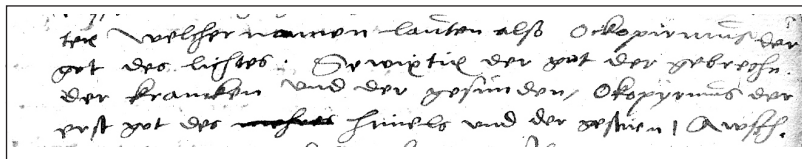 ter welcher namen lauten also Ockopirnus der
got des lichtes. Swaixtix der got der gebrechn.
der krancken und der gesunden, Okopyrnus der
erst got des himels und der gestirn